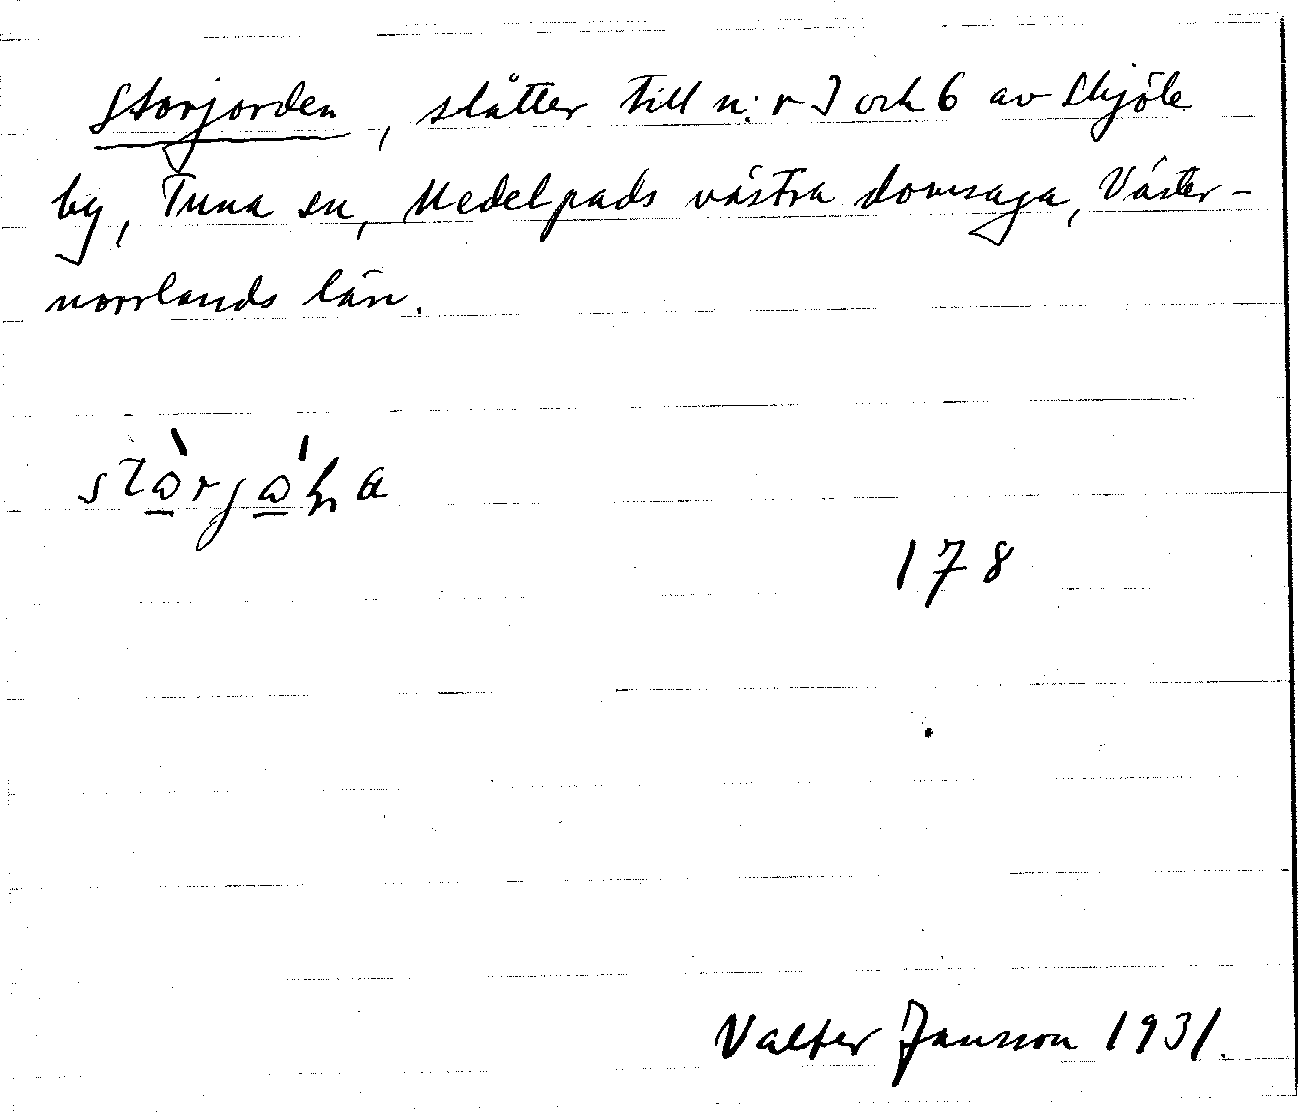 Storjorden, slåtter till n:r 3 och 6 av Skjöle
by, Tuna sn, Medelpads västra domsaga, Väster-
norrlands län.
178
Valter Jansson 1931.